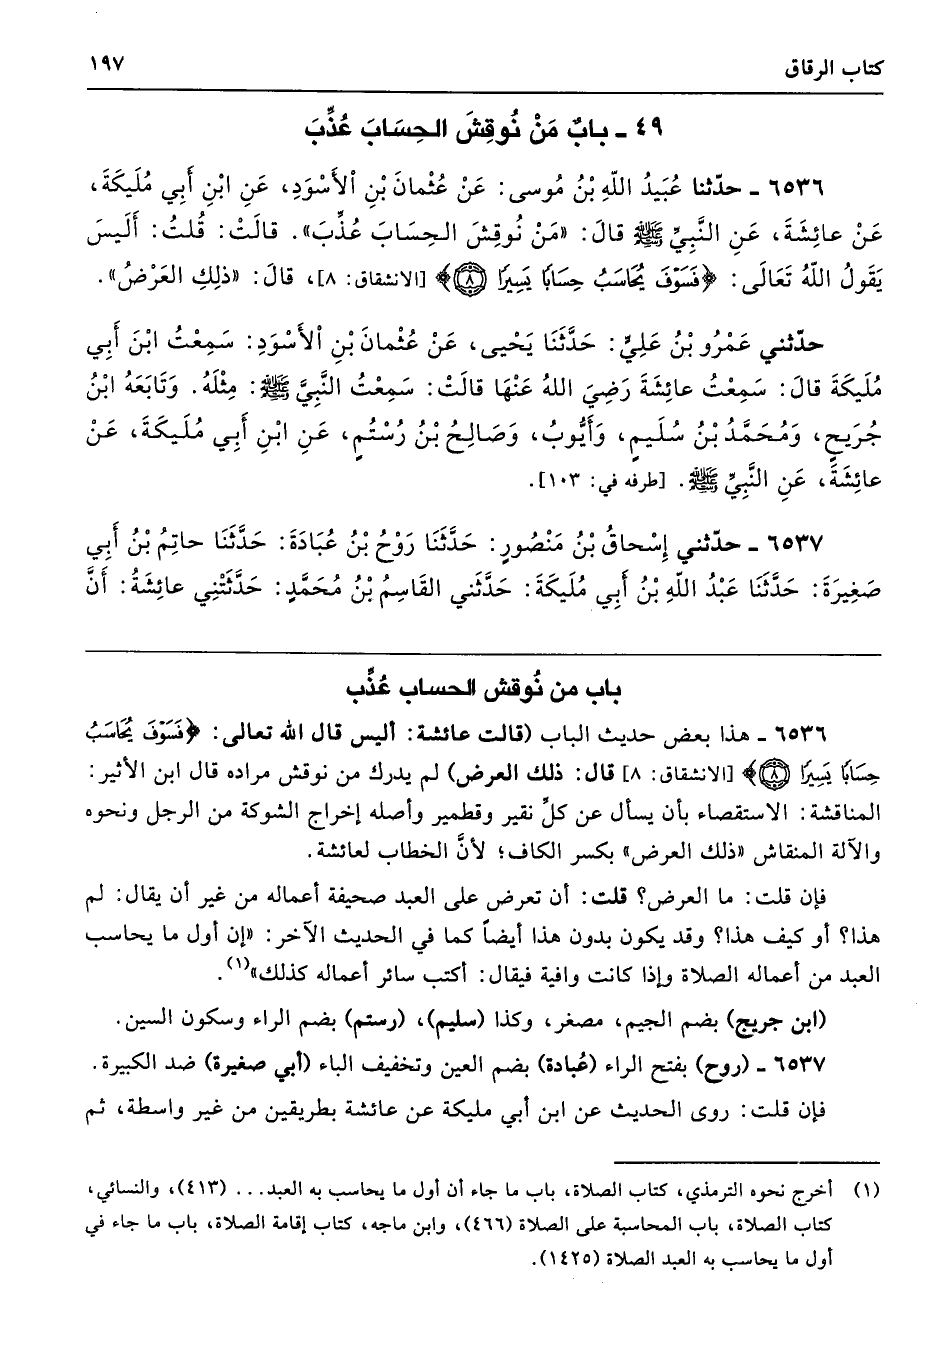 كتاب الرقاق ١٩٧
٤٩ ـ بابٌ مَنْ نُوقِشَ الحِسَابَ عُذِّبَ
٦٥٣٦ ـ حدّثنا عُبَيدُ اللّهِ بْنُ مُوسى: عَنْ عُثْمانَ بْنِ الأَسْوَدِ، عَنِ ابْنِ أَبِي مُلَيكَةَ،
عَنْ عائِشَةَ، عَنِ النَّبِيِّ ﷺ قالَ: «مَنْ نُوقِشَ الحِسَابَ عُذِّبَ». قالَتْ: قُلتُ: أَلَيسَ
يَقُولُ اللّهُ تَعَالَى: ﴿فَسَوْفَ يُحَاسَبُ حِسَابًا يَسِيرًا ۝٨﴾ [الانشقاق: ٨]، قالَ: «ذلِكِ العَرْضُ».
حدّثني عَمْرُو بْنُ عَلِيٍّ: حَدَّثَنَا يَحْيى، عَنْ عُثْمانَ بْنِ الأَسْوَدِ: سَمِعْتُ ابْنَ أَبِي
مُلَيكَةَ قالَ: سَمِعْتُ عائِشَةَ رَضِيَ اللهُ عَنْهَا قالَتْ: سَمِعْتُ النَّبِيَّ ﷺ: مِثْلَهُ. وَتَابَعَهُ ابْنُ
جُرَيجٍ، وَمُحَمَّدُ بْنُ سُلَيمٍ، وَأَيُّوبُ، وَصَالِحُ بْنُ رُسْتُمٍ، عَنِ ابْنِ أَبِي مُلَيكَةَ، عَنْ
عائِشَةَ، عَنِ النَّبِيِّ ﷺ. [طرفه في: ١٠٣].
٦٥٣٧ ـ حدّثني إِسْحاقُ بْنُ مَنْصُورٍ: حَدَّثَنَا رَوْحُ بْنُ عُبَادَةَ: حَدَّثَنَا حاتِمُ بْنُ أَبِي
صَغِيرَةَ: حَدَّثَنَا عَبْدُ اللّهِ بْنُ أَبِي مُلَيكَةَ: حَدَّثَني القَاسِمُ بْنُ مُحَمَّدٍ: حَدَّثَتْنِي عائِشَةُ: أَنَّ
باب من نُوقش الحساب عُذِّب
٦٥٣٦ ـ هذا بعض حديث الباب (قالت عائشة: أليس قال الله تعالى: ﴿فَسَوْفَ يُحَاسَبُ
حِسَابًا يَسِيرًا ۝٨﴾ [الانشقاق: ٨] قال: ذلك العرض) لم يدرك من نوقش مراده قال ابن الأثير:
المناقشة: الاستقصاء بأن يسأل عن كلِّ نقير وقطمير وأصله إخراج الشوكة من الرجل ونحوه
والآلة المنقاش «ذلك العرض» بكسر الكاف؛ لأنَّ الخطاب لعائشة.
فإن قلت: ما العرض؟ قلت: أن تعرض على العبد صحيفة أعماله من غير أن يقال: لم
هذا؟ أو كيف هذا؟ وقد يكون بدون هذا أيضاً كما في الحديث الآخر: «إن أول ما يحاسب
العبد من أعماله الصلاة وإذا كانت وافية فيقال: أكتب سائر أعماله كذلك»(١).
(ابن جريج) بضم الجيم، مصغر، وكذا (سليم)، (رستم) بضم الراء وسكون السين.
٦٥٣٧ ـ (روح) بفتح الراء (عُبادة) بضم العين وتخفيف الباء (أبي صغيرة) ضد الكبيرة.
فإن قلت: روى الحديث عن ابن أبي مليكة عن عائشة بطريقين من غير واسطة، ثم
(١) أخرج نحوه الترمذي، كتاب الصلاة، باب ما جاء أن أول ما يحاسب به العبد... (٤١٣)، والنسائي،
كتاب الصلاة، باب المحاسبة على الصلاة (٤٦٦)، وابن ماجه، كتاب إقامة الصلاة، باب ما جاء في
أول ما يحاسب به العبد الصلاة (١٤٢٥).